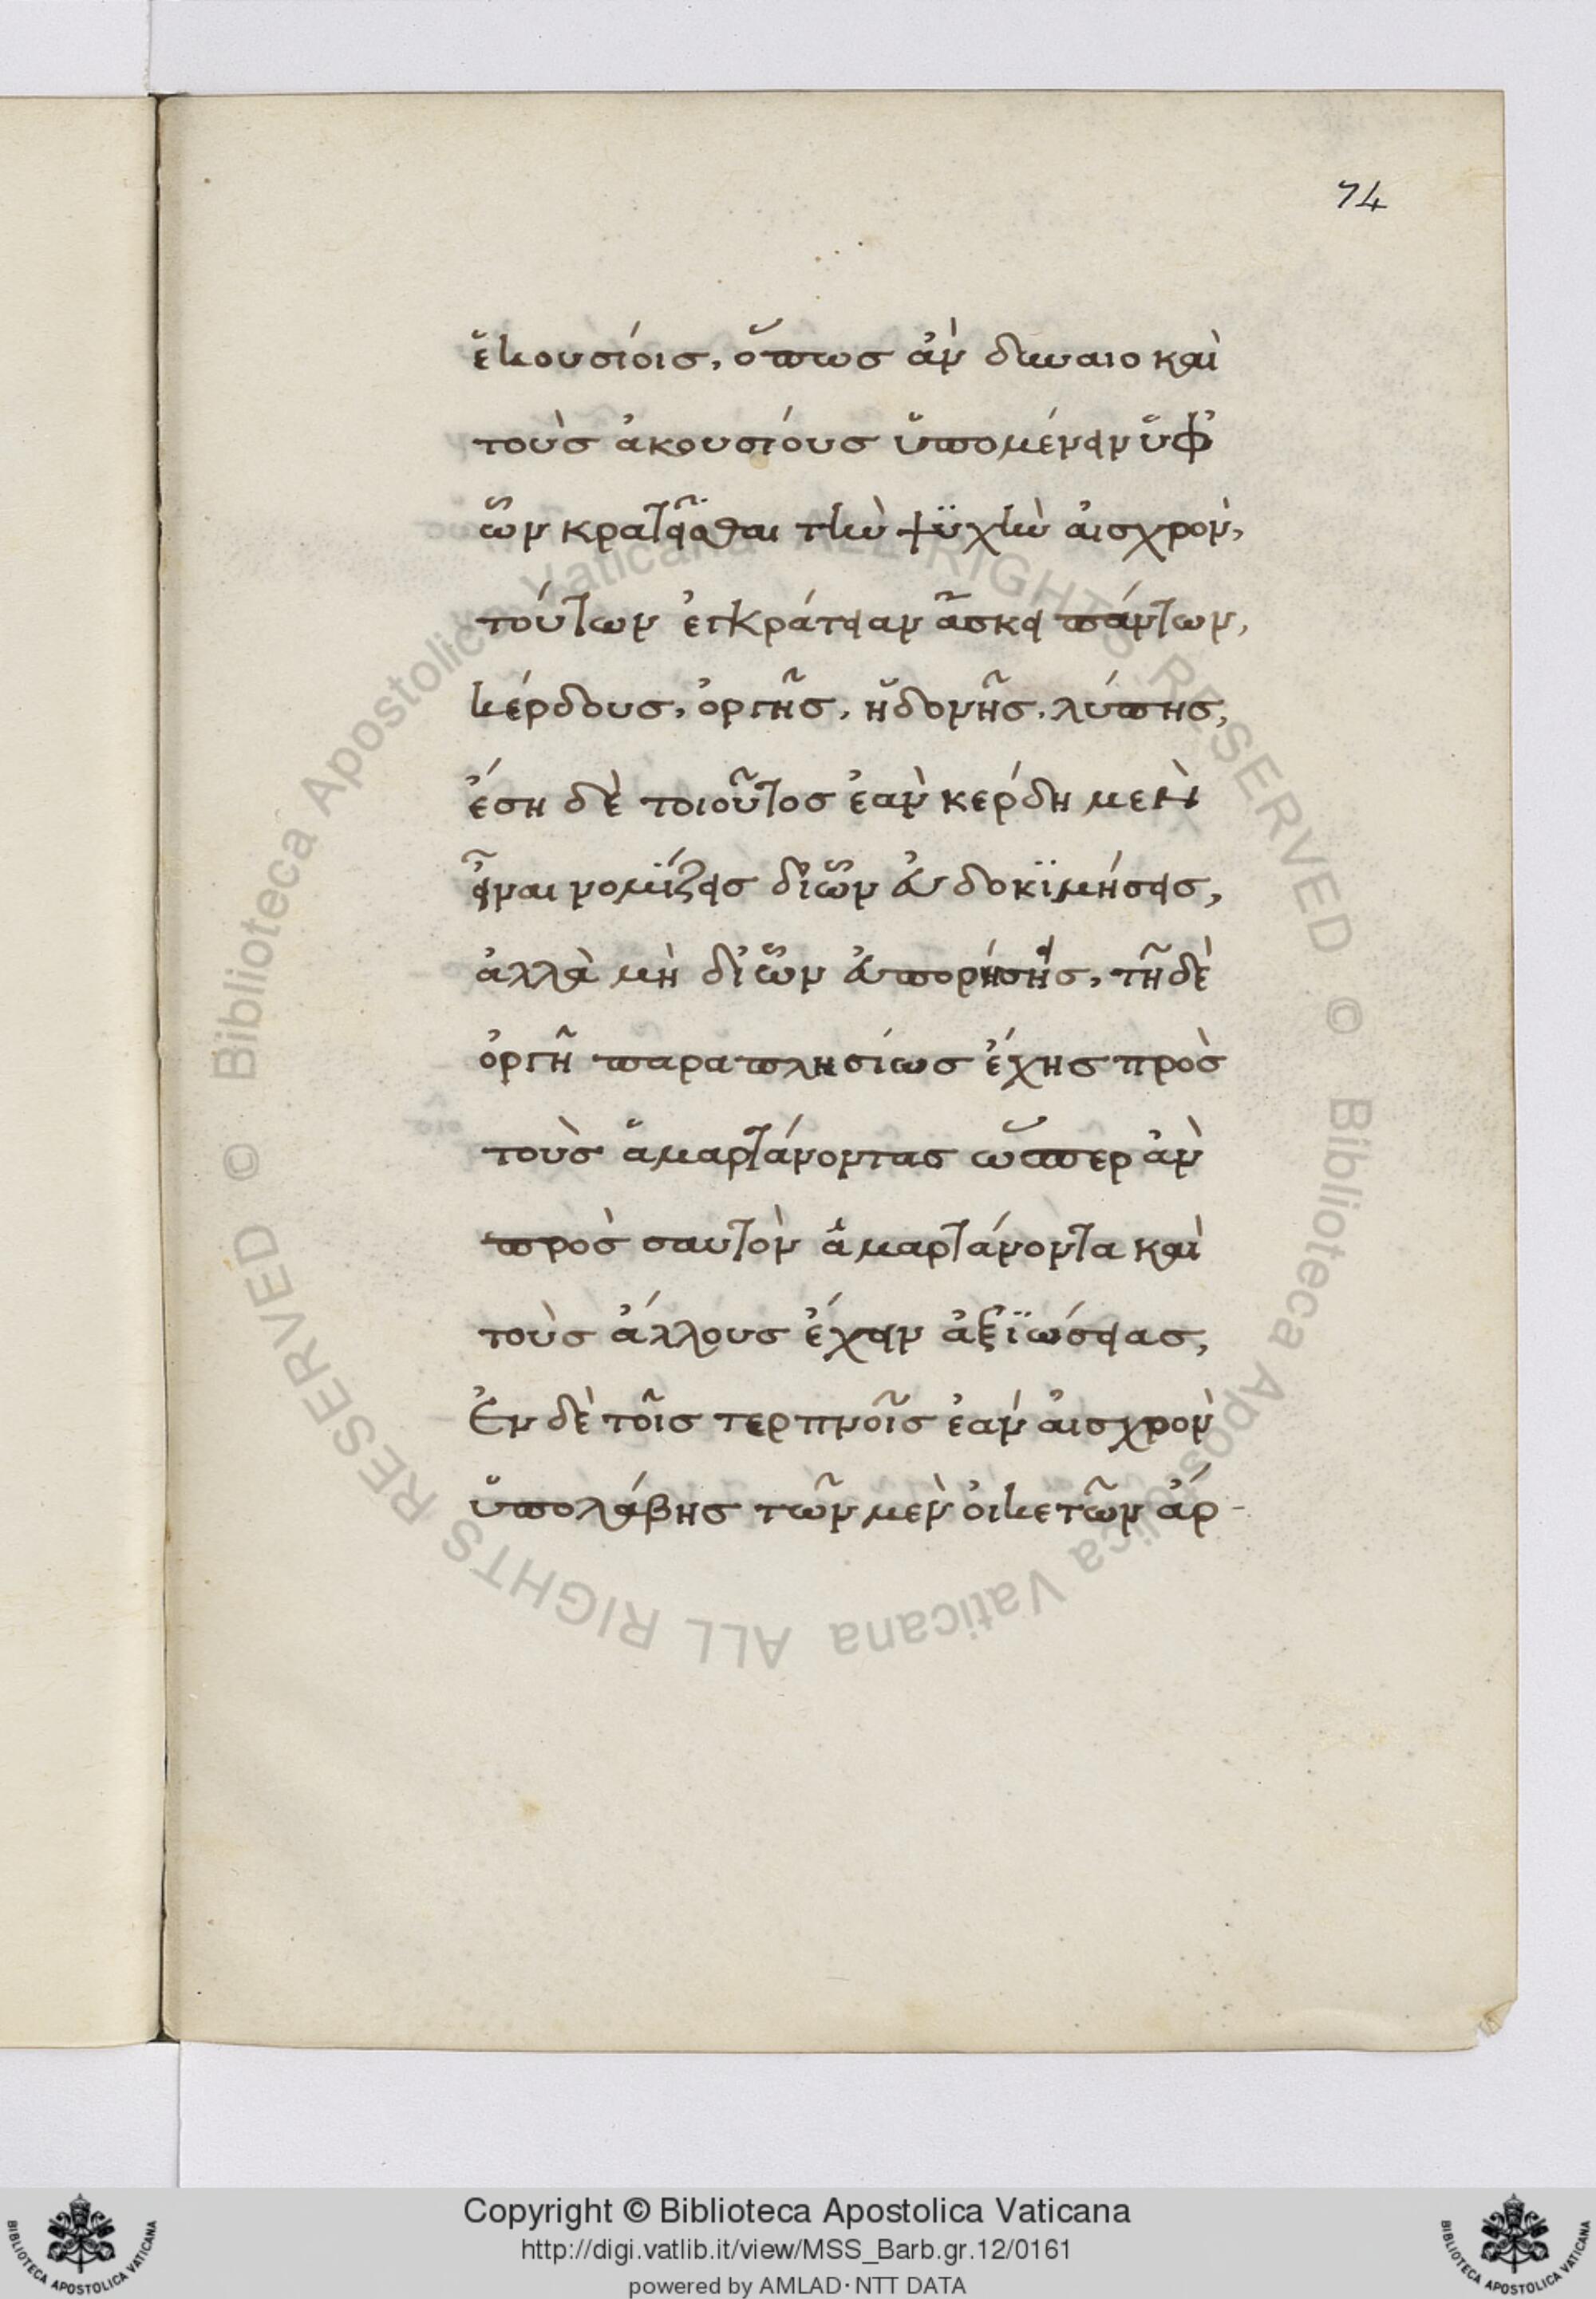 74
ἑκουσίοις, ὅπως ἂν δύναιο καὶ
τοὺς ἀκουσίους ὑπομένειν ὑφ'
ὧν κρατεῖσθαι τὴν ψϋχὴν αἰσχρὸν,
τούτων ἐγκράτειαν ἄσκει πάντων,
κέρδους, ὀργῆς, ἡδονῆς, λύπης,
ἔση δὲ τοιοῦτος ἐὰν κέρδη μὲν
εἶναι νομΐζεις δι' ὧν εὐδοκϊμήσεις,
ἀλλὰ μὴ δι' ὧν εὐπορήσῃς, τῇ δὲ
ὀργῇ παραπλησίως ἔχης πρὸς
τοὺς ἁμαρτάνοντας ὥσπερ ἂν
πρὸς σαυτὸν ἁμαρτάνοντα καὶ
τοὺς ἄλλους ἔχειν ἀξϊώσειας,
Ἐν δὲ τοῖς τερπνοῖς ἐὰν αἰσχρὸν
ὑπολάβης τῶν μὲν οἰκετῶν ἄρ-
© Biblioteca Apostolica Vaticana ALL RIGHTS RESERVED © Biblioteca Apostolica Vaticana ALL RIGHTS RESERVED
Copyright © Biblioteca Apostolica Vaticana
http://digi.vatlib.it/view/MSS_Barb.gr.12/0161
powered by AMLAD·NTT DATA
BIBLIOTECA APOSTOLICA VATICANA
BIBLIOTECA APOSTOLICA VATICANA